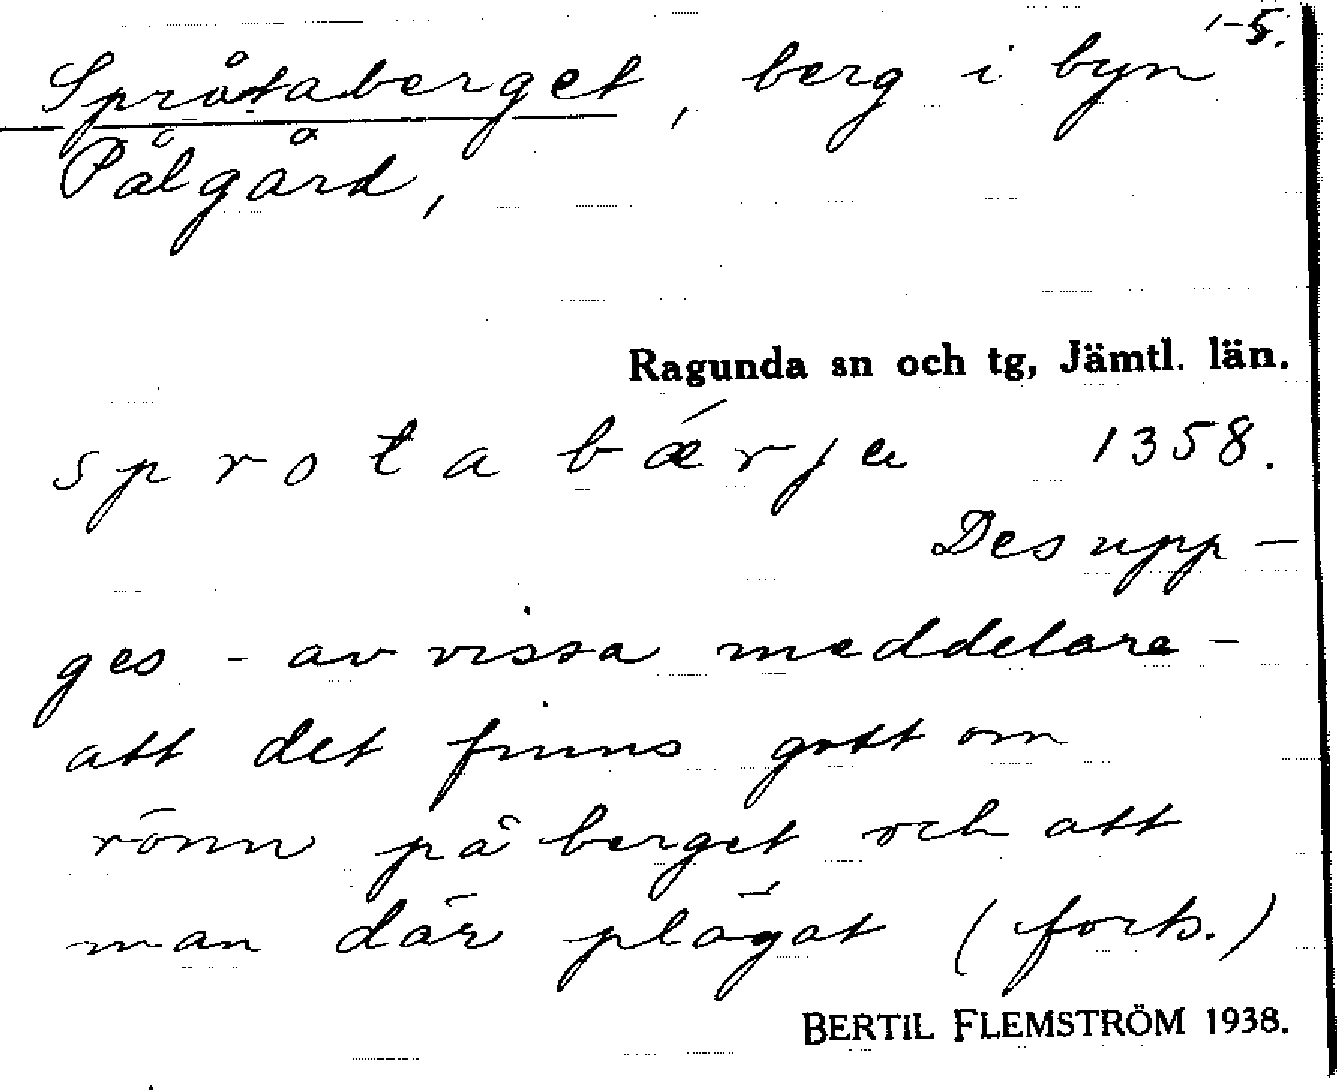 1-5.
Språtaberget, berg i byn
Pålgård,
Ragunda sn och tg, Jämtl. län.
sprotabǽrjɐ 1358.
Des upp-
ges - av vissa meddelare -
att det finns gott om
rönn på berget och att
man där plägat (forts.)
BERTIL FLEMSTRÖM 1938.